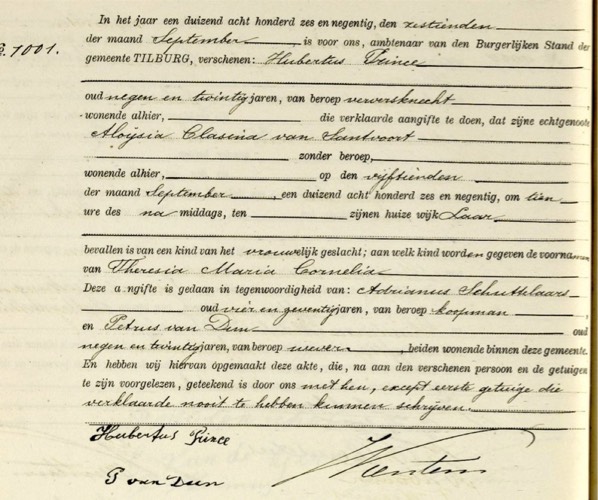 In het jaar een duizend acht honderd zes en negentig, den zestienden
o. 1001.
der maand September is voor ons, ambtenaar van den Burgerlijken Stand der
gemeente TILBURG, verschenen: Hubertus Prince
oud negen en twintig jaren, van beroep verversknecht
wonende alhier, die verklaarde aangifte te doen, dat zijne echtgenoote
Aloÿsia Clasina van Santvoort
zonder beroep,
wonende alhier, op den vijftienden
der maand September, een duizend acht honderd zes en negentig, om tien
ure des na middags, ten zijnen huize wijk Laar
bevallen is van een kind van het vrouwelijk geslacht; aan welk kind worden gegeven de voornamen
van Theresia Maria Cornelia
Deze aangifte is gedaan in tegenwoordigheid van: Adrianus Schutklaars
oud vier en zeventig jaren, van beroep koopman,
en Petrus van Dun oud
negen en twintig jaren, van beroep wever, beiden wonende binnen deze gemeente.
En hebben wij hiervan opgemaakt deze akte, die, na aan den verschenen persoon en de getuigen
te zijn voorgelezen, geteekend is door ons met hen, except eerste getuige die
verklaarde nooit te hebben kunnen schrijven.
Hubertus Prince
P van Dun